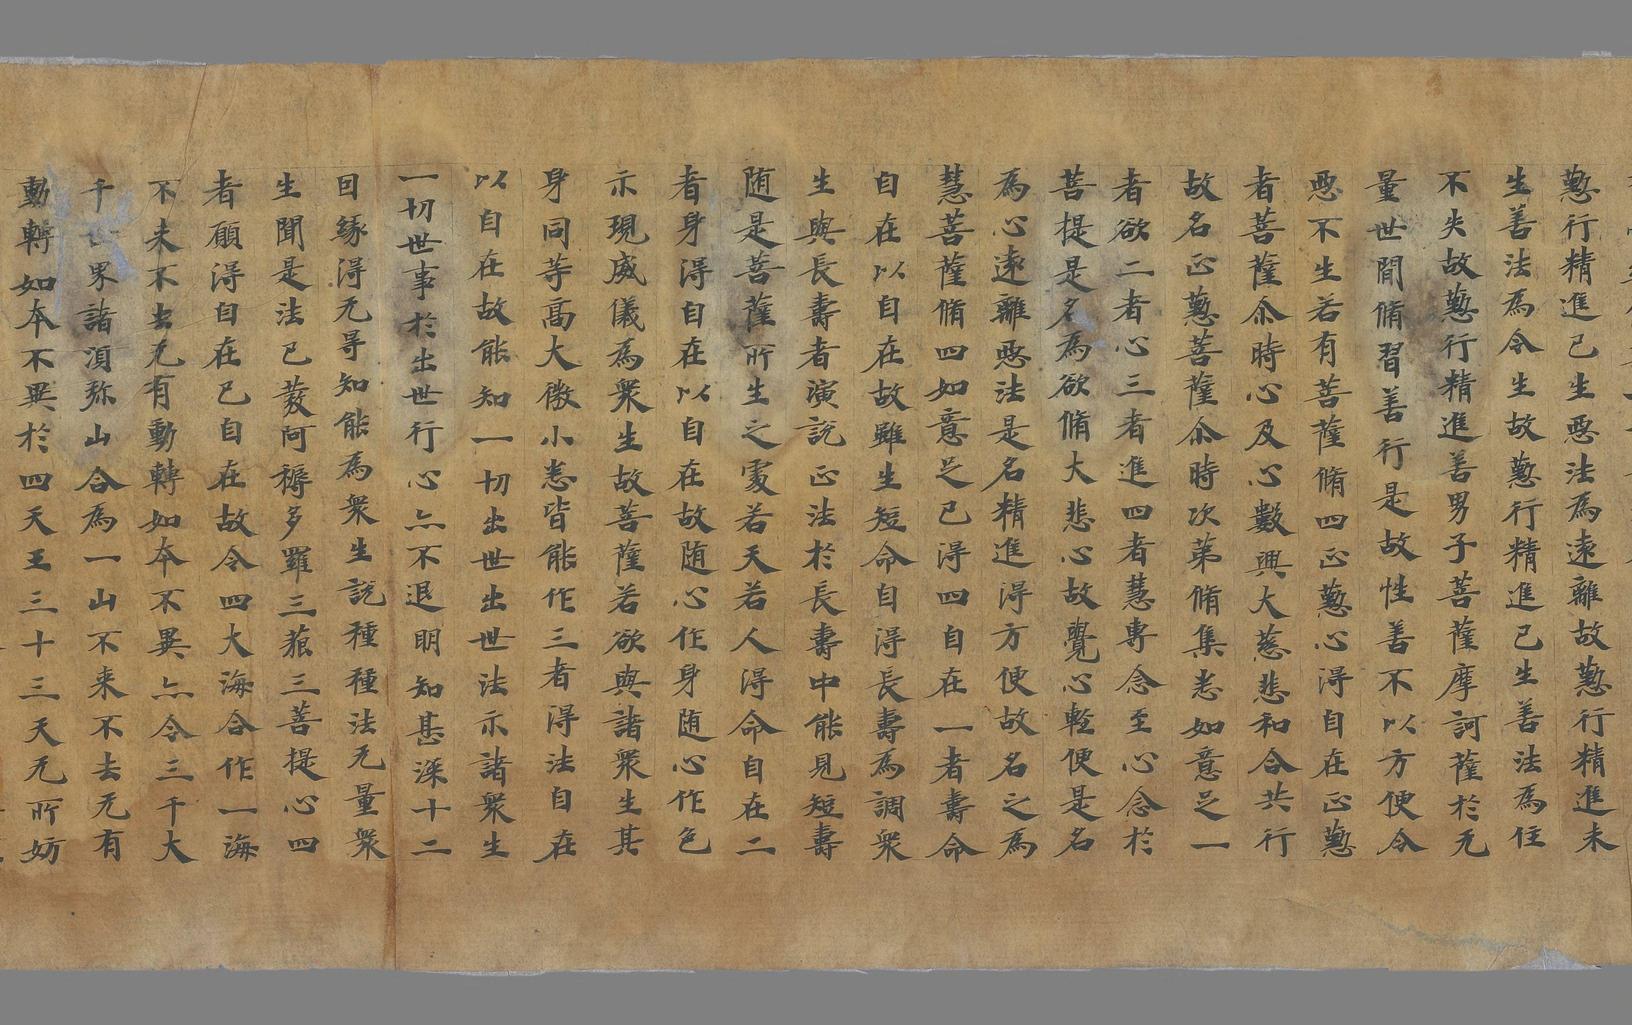 懃行精進已生惡法為遠離故懃行精進未
生善法為令生故懃行精進已生善法為住
不失故懃行精進善男子菩薩摩訶薩於无
量世間脩習善行是故性善不以方便令
惡不生若有菩薩脩四正懃心得自在正懃
者菩薩尒時心及心數興大慈悲和合共行
故名正懃菩薩尒時次第脩集悉如意足一
者欲二者心三者進四者慧專念至心念於
菩提是名為欲脩大悲心故覺心輕便是名
為心遠離惡法是名精進得方便故名之為
慧菩薩脩四如意足已得四自在一者壽命
自在以自在故雖生短命自得長壽為調衆
生與長壽者演說正法於長壽中能見短壽
随是菩薩所生之處若天若人得命自在二
者身得自在以自在故随心作身随心作色
示現威儀為衆生故菩薩若欲與諸衆生其
身同等高大微小悉皆能作三者得法自在
以自在故能知一切出世出世法示諸衆生
一切世事於出世行心亦不退明知甚深十二
因緣得无㝵知能為衆生說種種法无量衆
生聞是法已發阿耨多羅三藐三菩提心四
者願得自在已自在故令四大海合作一海
不来不去无有動轉如本不異亦令三千大
千世界諸須弥山合為一山不来不去无有
動轉如本不異於四天王三十三天无所妨